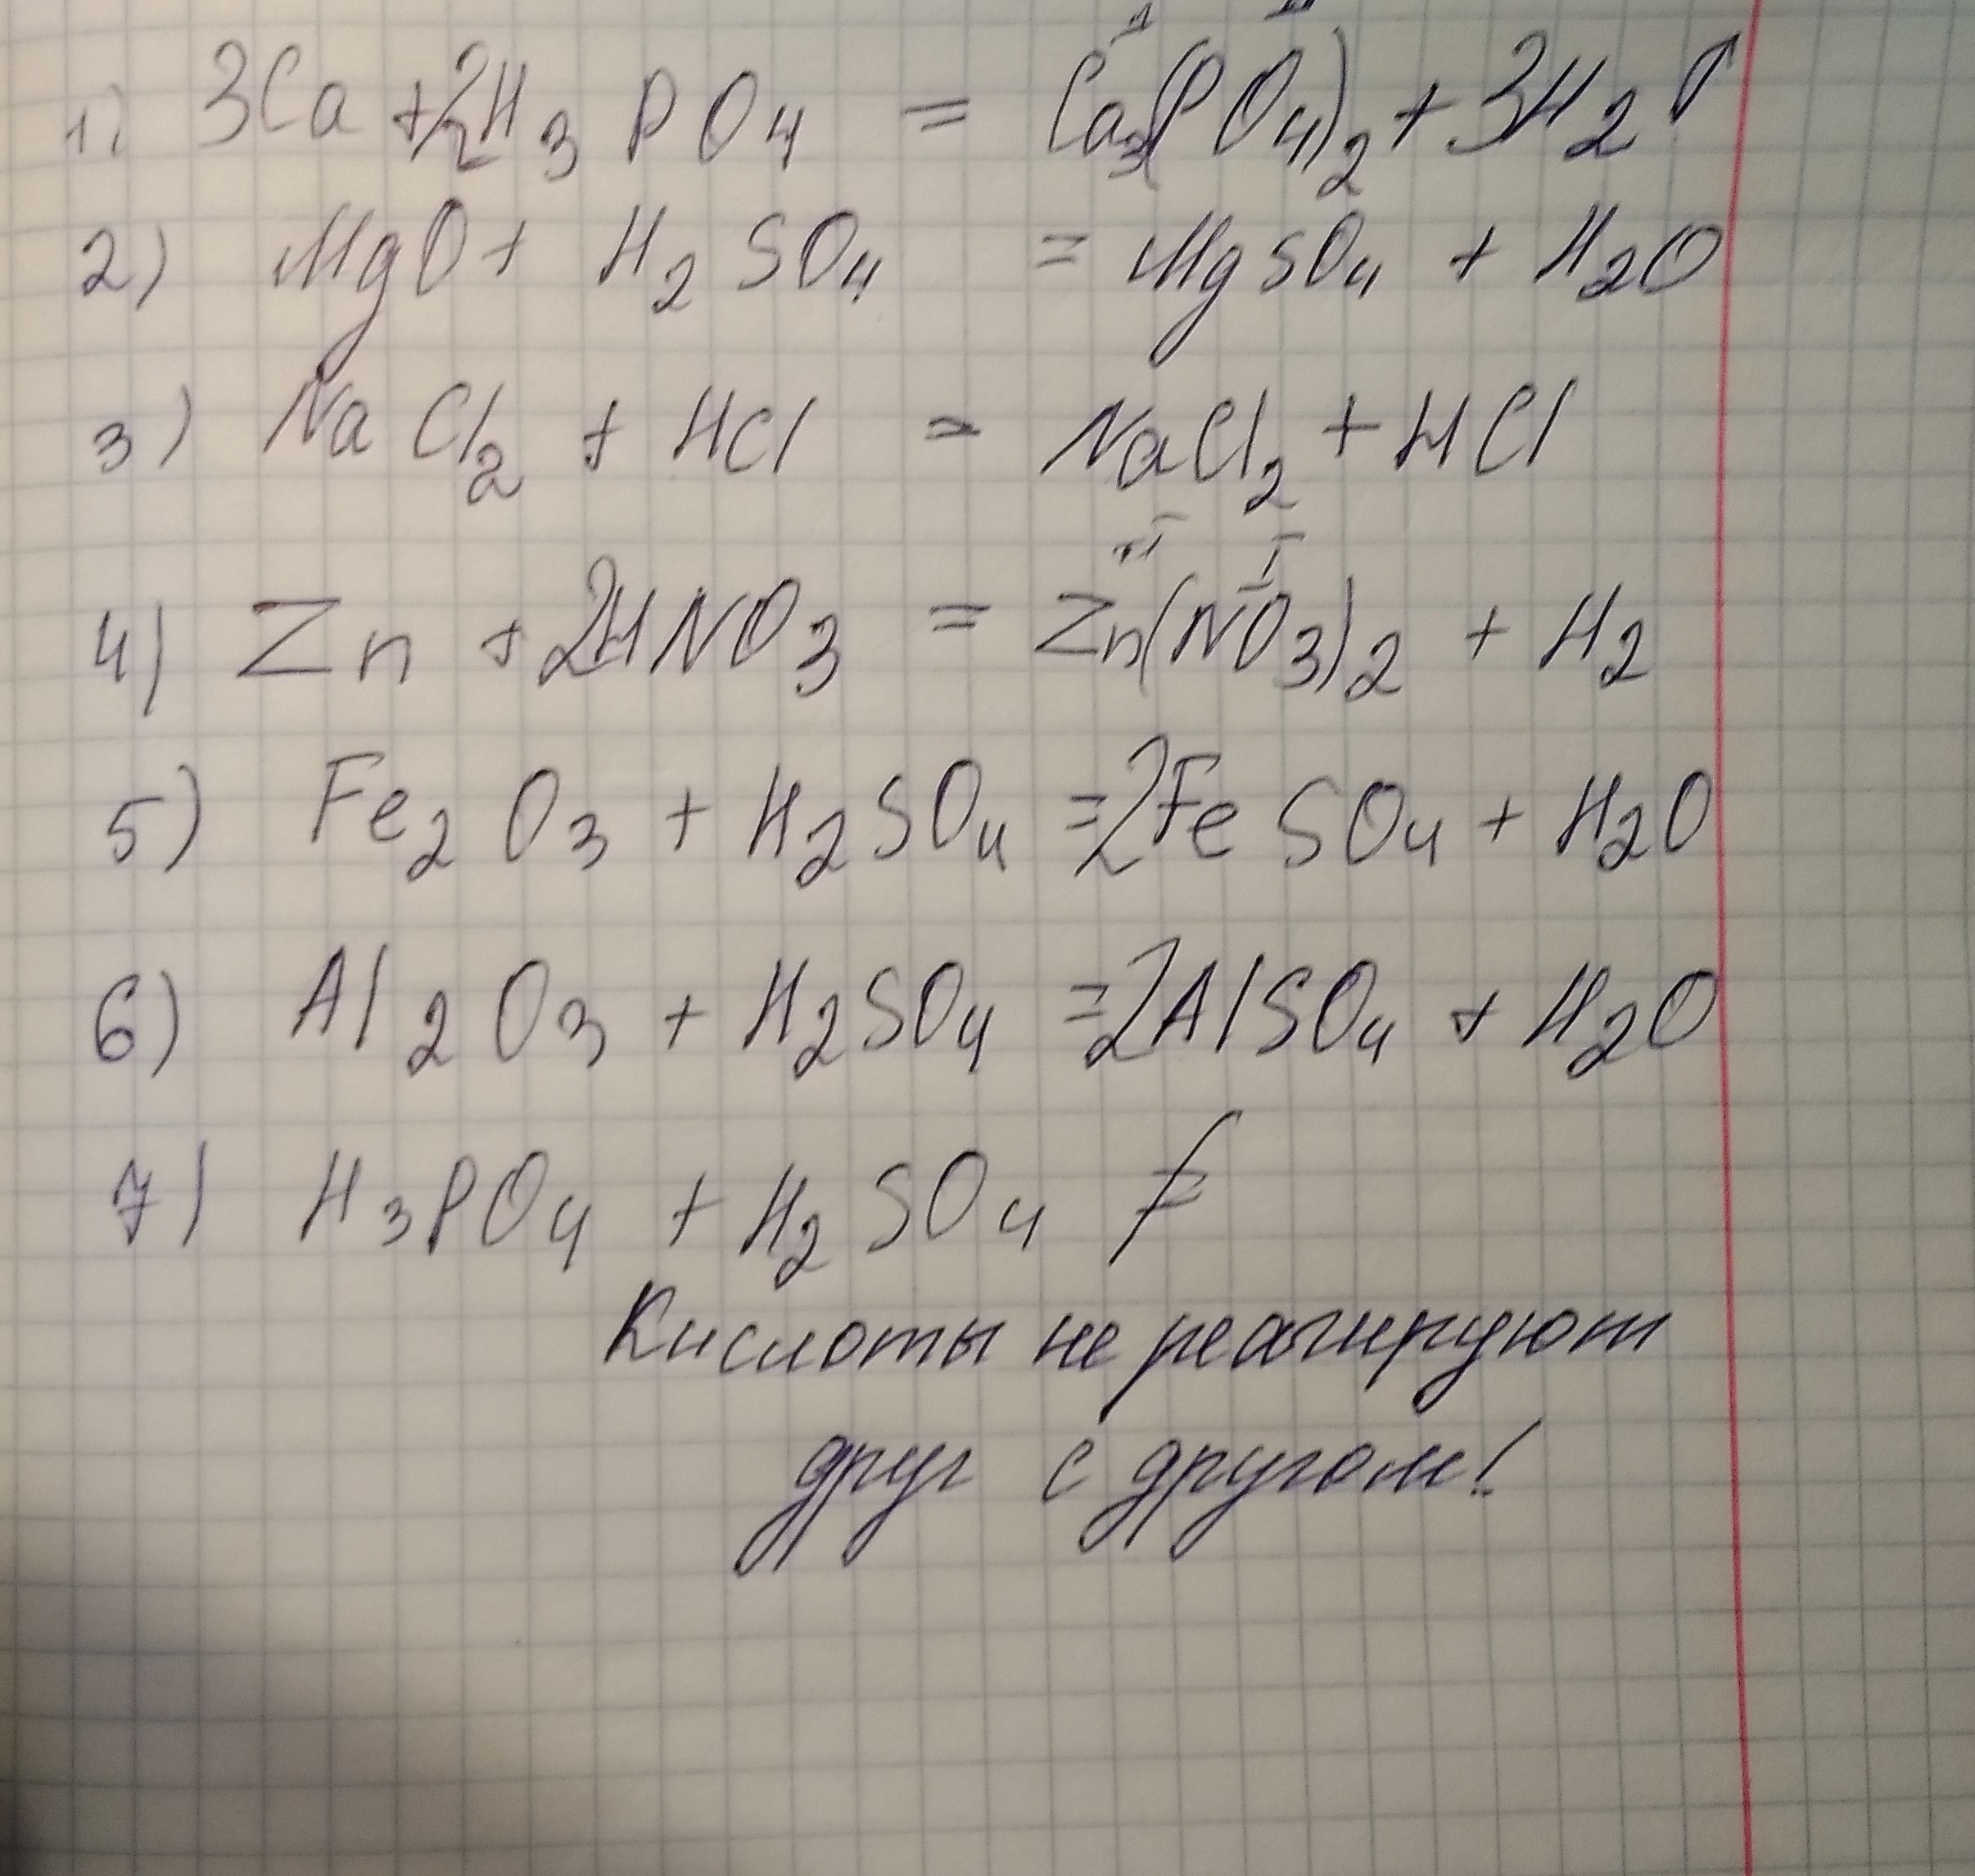 1) 3Ca + 2H3PO4 = Ca3(PO4)2 + 3H2↑
2) MgO + H2SO4 = MgSO4 + H2O
3) NaCl2 + HCl = NaCl2 + HCl
4) Zn + 2HNO3 = Zn(NO3)2 + H2
5) Fe2O3 + H2SO4 = 2FeSO4 + H2O
6) Al2O3 + H2SO4 = 2AlSO4 + H2O
7) H3PO4 + H2SO4 ≠
Кислоты не реагируют
друг с другом!